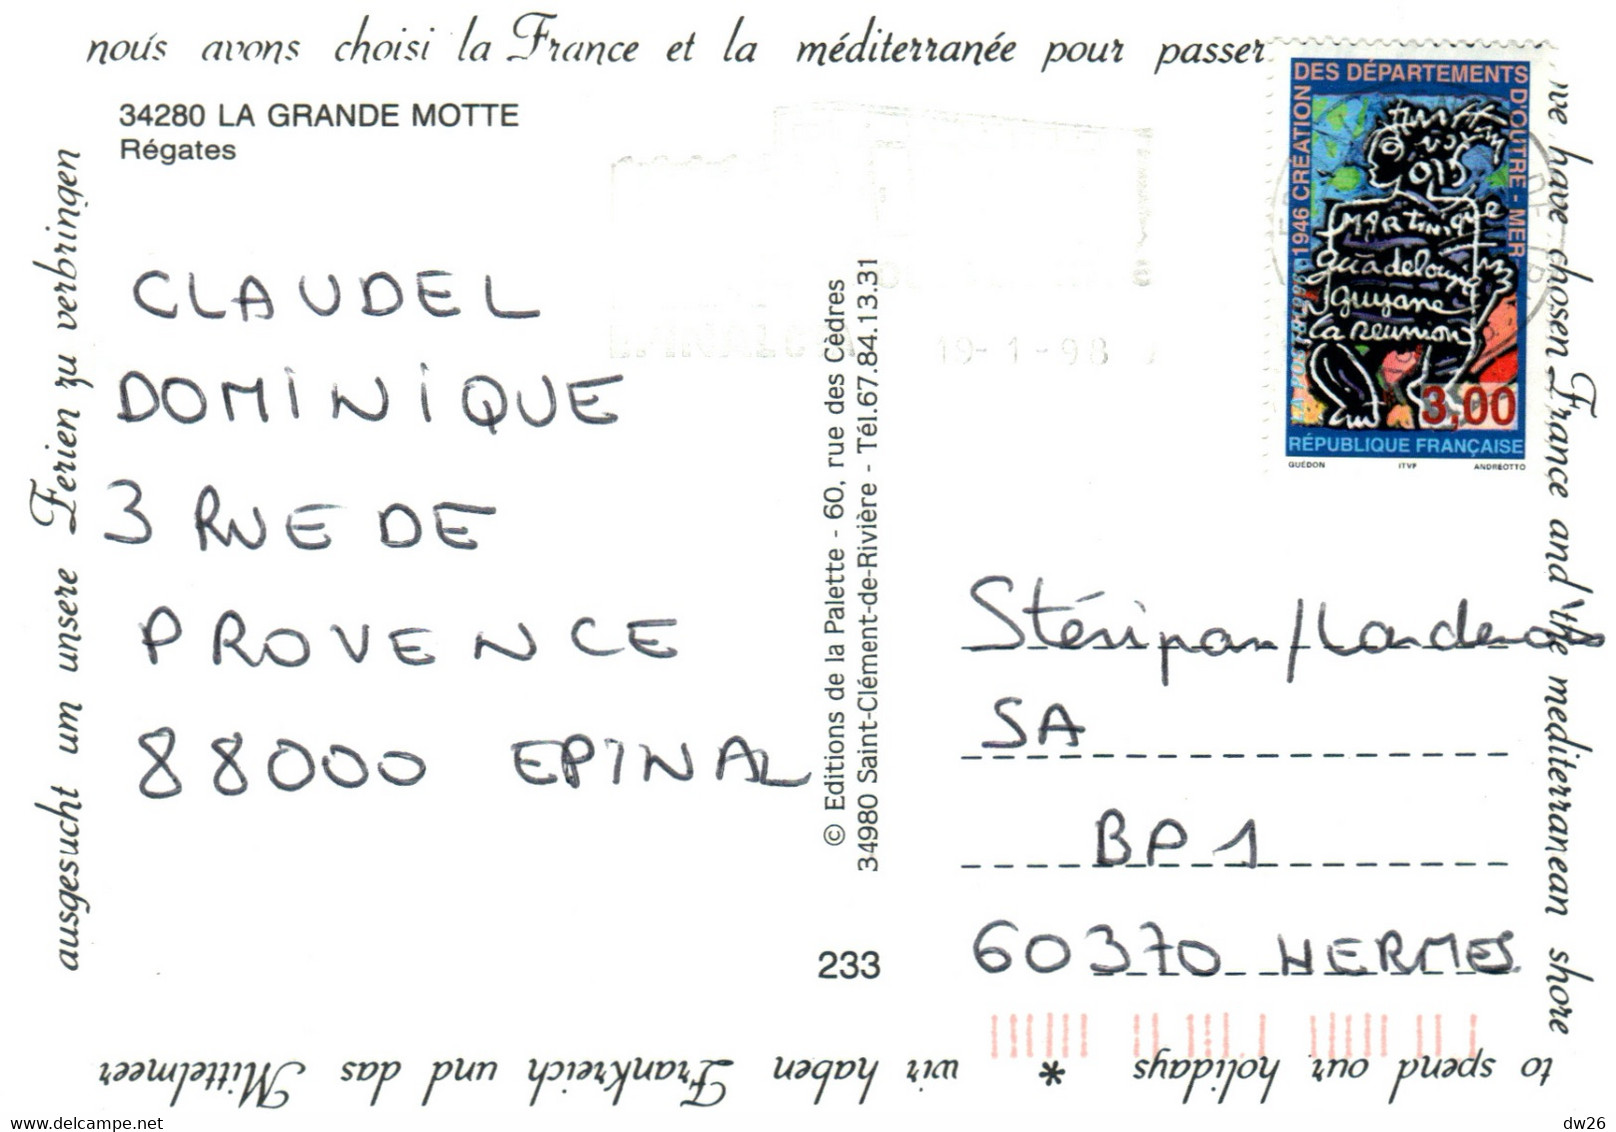 nous avons choisi la France et la méditerranée pour passer
34280 LA GRANDE MOTTE
Régates
CLAUDEL
DOMINIQUE
3 RUE DE
PROVENCE
88000 EPINAL
© Editions de la Palette - 60, rue des Cèdres
34980 Saint-Clément-de-Rivière - Tél.67.84.13.31
233
1946 CRÉATION DES DÉPARTEMENTS D'OUTRE-MER
MARTINIQUE
guadeloupe
guyane
la reunion
LA POSTE 1996
3,00
RÉPUBLIQUE FRANÇAISE
GUÉDON ITVF ANDRÉOTTO
19-1-98
Stéripan/
SA
BP 1
60370 HERMES
we have chosen France and the mediterranean shore
to spend our holidays * wir haben Frankreich und das Mittelmeer
ausgesucht um unsere Ferien zu verbringen
delcampe.net
dw26